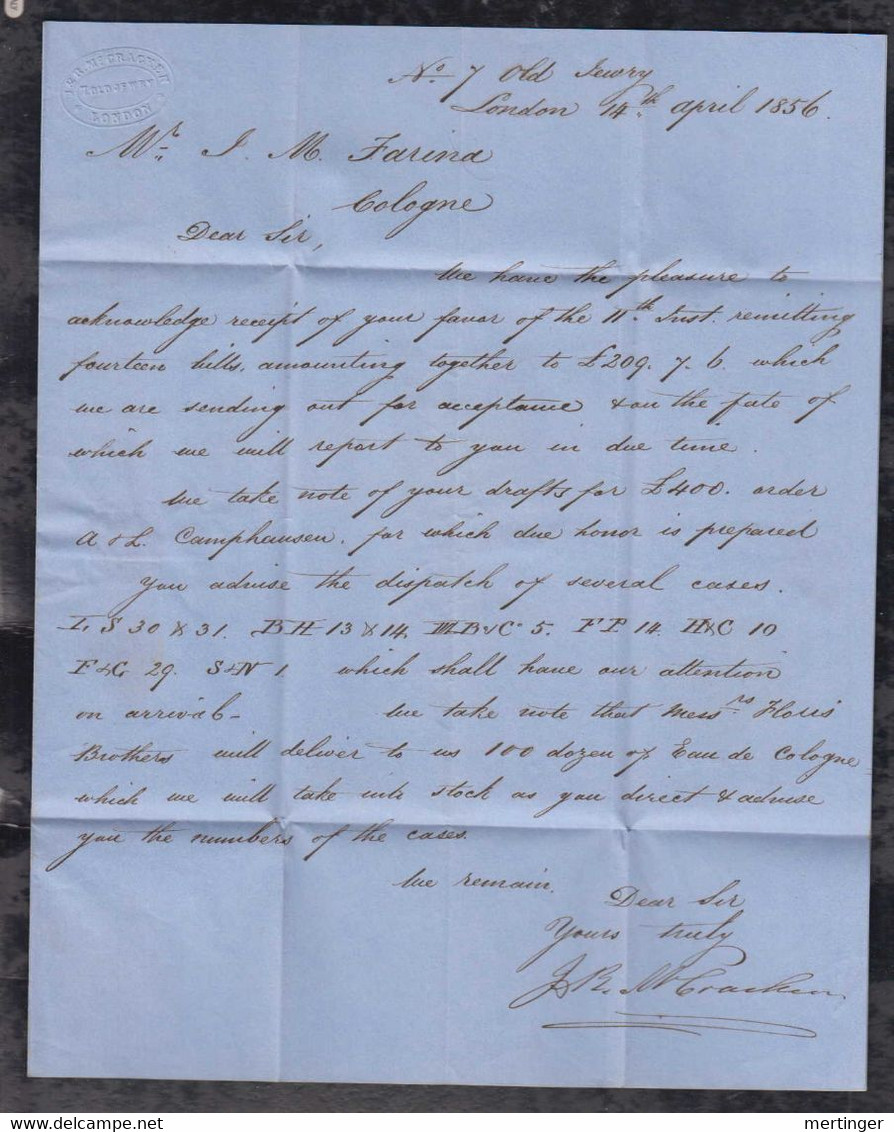 J & R. McCRACKEN
7 OLD JEWRY
LONDON
No. 7 Old Jewry
London 14th April 1856.
Mr. J. M. Farina
Cologne
Dear Sir,
We have the pleasure to
acknowledge receipt of your favor of the 11th Inst. remitting
fourteen bills, amounting together to £209. 7. 6. which
we are sending out for acceptance & on the fate of
which we will report to you in due time.
We take note of your drafts for £400. order
A & L. Camphausen, for which due honor is prepared
You advise the dispatch of several cases.
I. S 30 & 31. BH 13 & 14, MB&Co 5. FP 14. H&C 10
F&G 29. S&N 1. which shall have our attention
on arrival-
We take note that Messrs Floris
Brothers will deliver to us 100 dozen of Eau de Cologne
which we will take into stock as you direct & advise
you the numbers of the cases.
We remain,
Dear Sir
Yours truly
J & R. McCracken
delcampe.net
mertinger